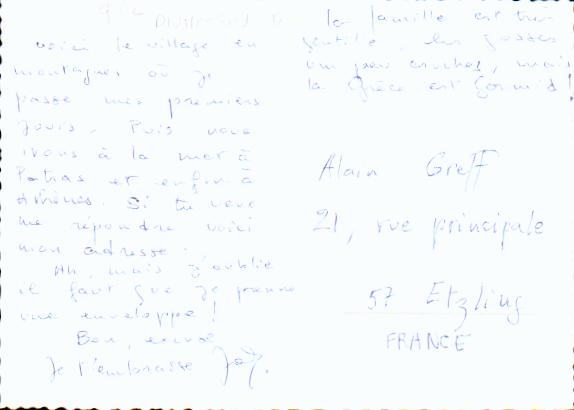 voici le village en
montagnes où je
passe mes premiers
jours. Puis nous
irons à la mer à
Patras et enfin à
Athènes. Si tu veux
me répondre voici
mon adresse :
Ah, mais j'oublie
il faut que je prenne
une enveloppe !
Bon, excuse
Je t'embrasse
La famille est très
gentille, les gosses
un peu
mais
la Grèce est formid !
Alain Greff
21, rue principale
57 Etzling
FRANCE